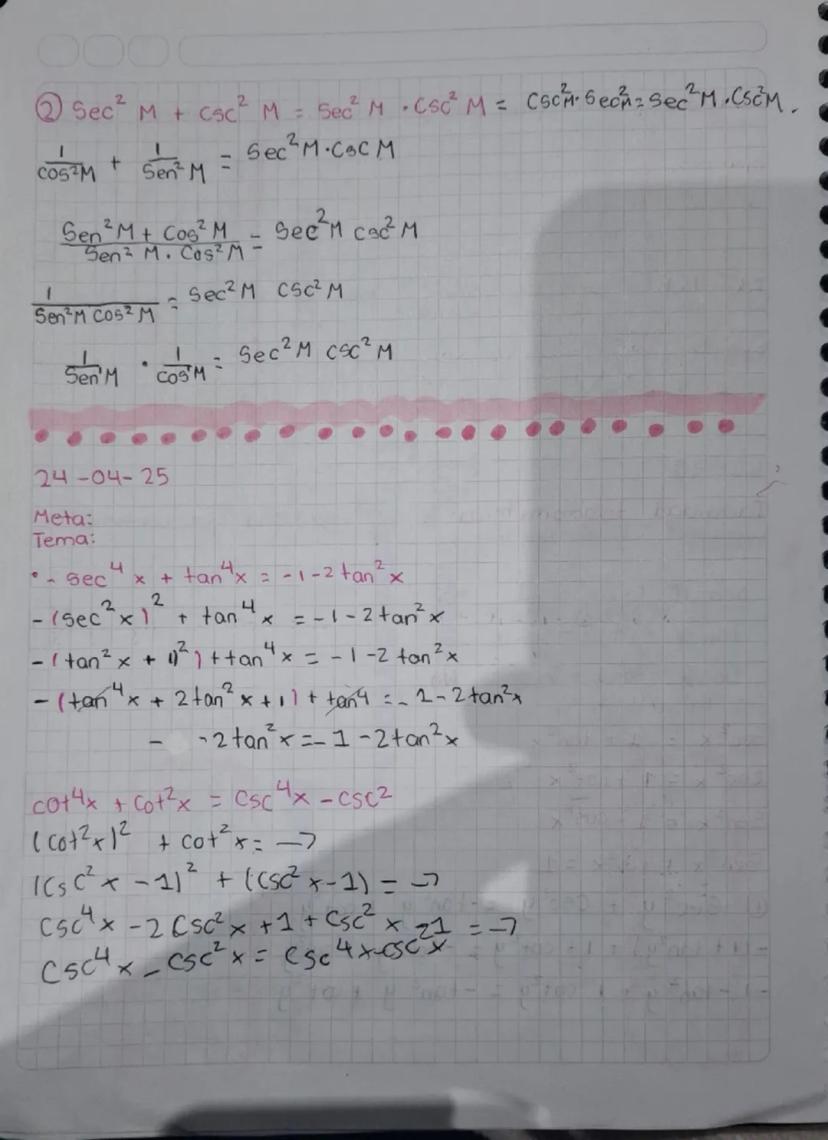 ② Sec² M + csc² M = Sec² M · Csc² M = Csc²M · Sec²M = Sec²M · Csc²M.
1/cos²M + 1/Sen²M = Sec²M · Csc M
Sen²M + Cos²M / Sen² M . Cos²M = Sec²M csc²M
1/Sen²M Cos²M = Sec²M Csc²M
1/Sen²M · 1/Cos²M = Sec²M csc²M
24-04-25
Meta:
Tema:
• - sec⁴x + tan⁴x = -1-2tan²x
-(sec²x)² + tan⁴x = -1-2tan²x
-(tan²x + 1)²) + tan⁴x = -1-2tan²x
-(tan⁴x + 2tan²x +1) + tan4 = -1-2tan²x
- -2tan²x = -1-2tan²x
cot⁴x + Cot²x = Csc⁴x - csc²
(cot²x)² + cot²x = →
(Csc²x -1)² + (Csc²x -1) = →
Csc⁴x - 2Csc²x +1 + Csc²x -1 = →
Csc⁴x - Csc²x = Csc⁴x-csc²x